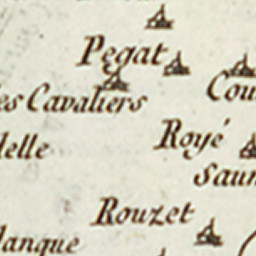 Pegat
es Cavaliers
Cou
Royé
delle
Saun
Rouzet
lanque